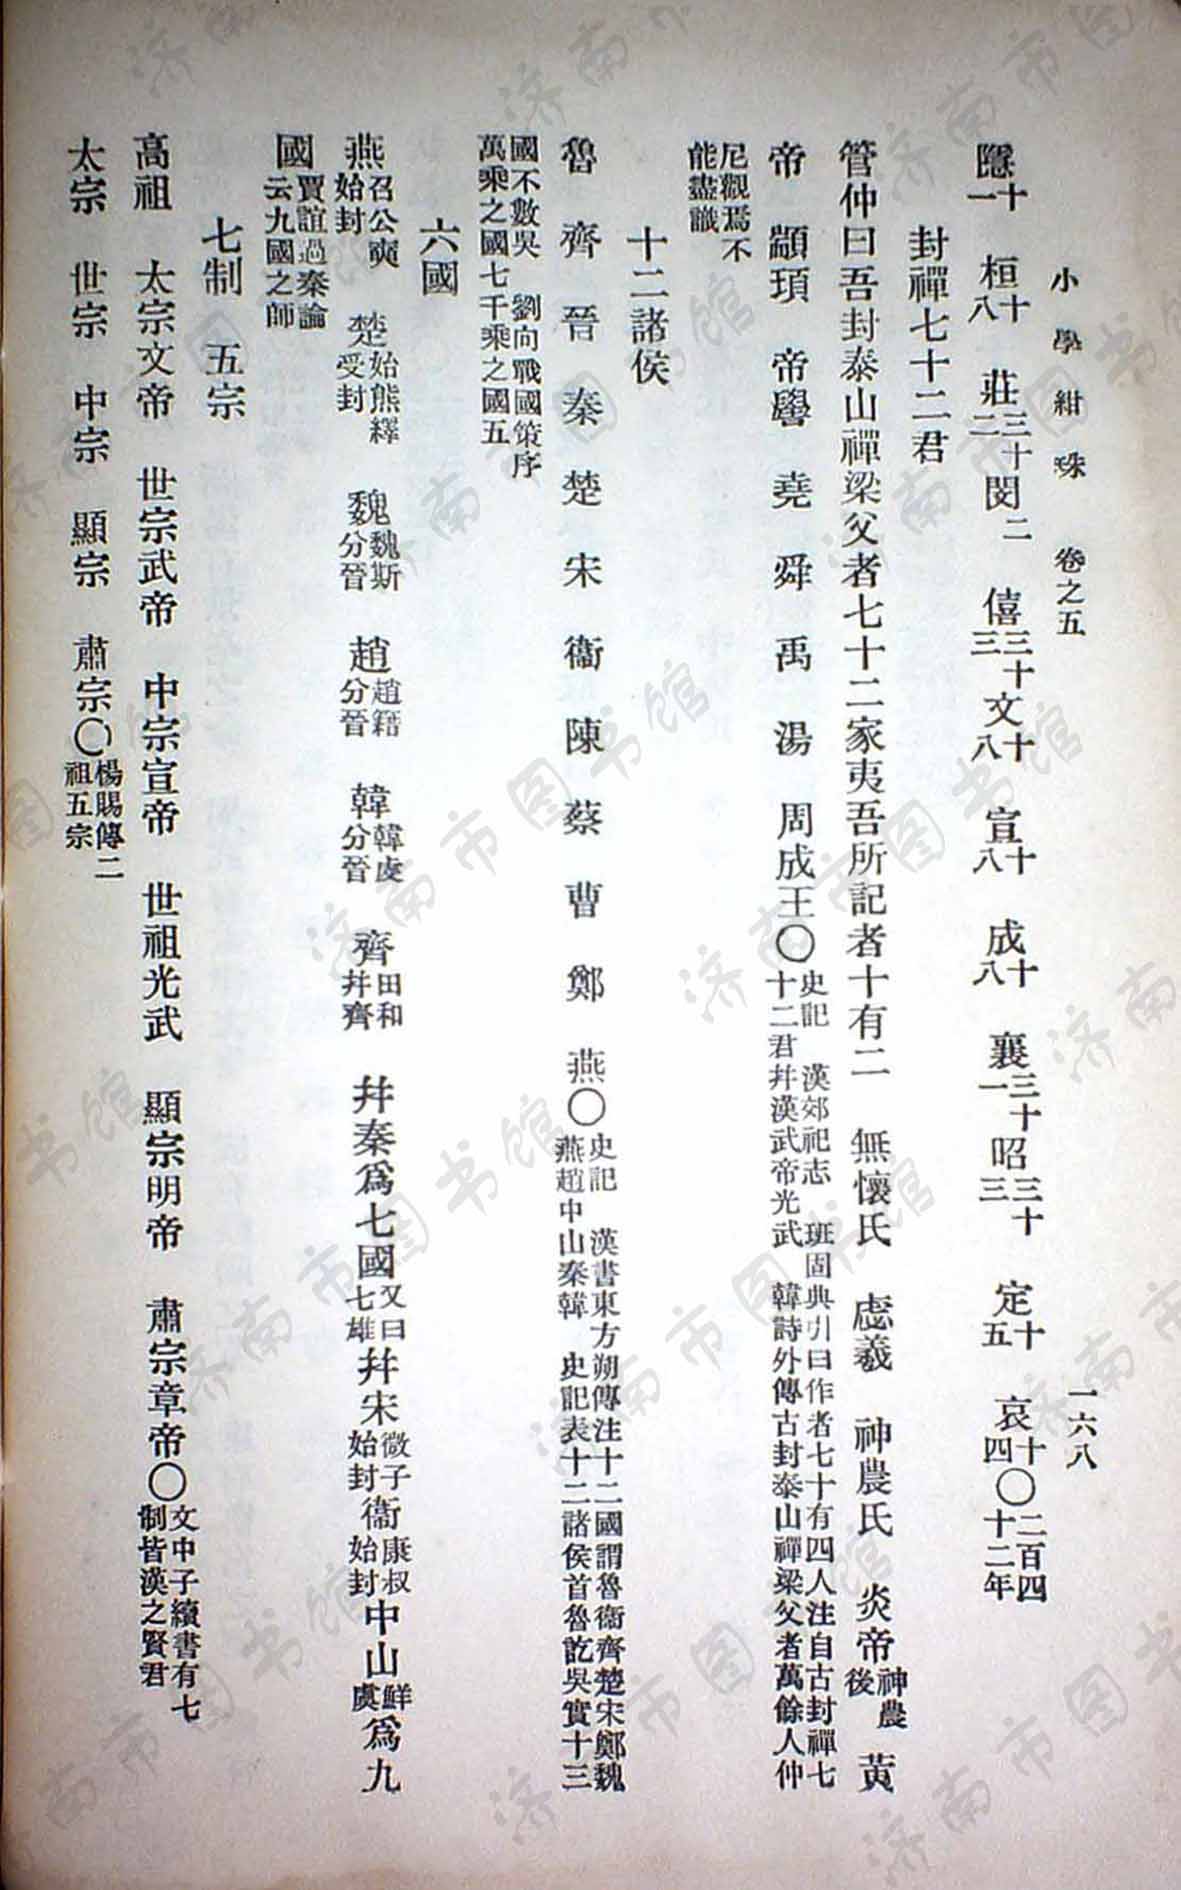 小學紺珠 卷之五 一六八
隱十一 桓十八 莊三十二 閔二 僖三十三 文十八 宣十八 成十八 襄三十一 昭三十三 定十五 哀十四〇二百四十二年
封禪七十二君
管仲曰吾封泰山禪梁父者七十二家夷吾所記者十有二 無懷氏 虙羲 神農氏 炎帝神農後 黃
帝 顓頊 帝嚳 堯 舜 禹 湯 周成王〇史記 漢郊祀志 班固典引曰作者七十有四人注自古封禪七十二君幷漢武帝光武 韓詩外傳古封泰山禪梁父者萬餘人仲
尼觀焉不能盡識
十二諸侯
魯 齊 晉 秦 楚 宋 衞 陳 蔡 曹 鄭 燕〇史記 漢書東方朔傳注十二國謂魯衞齊楚宋鄭魏燕趙中山秦韓 史記表十二諸侯首魯訖吳實十三
國不數吳 劉向戰國策序萬乘之國七千乘之國五
六國
燕召公奭始封 楚始熊繹受封 魏魏斯分晉 趙趙籍分晉 韓韓虔分晉 齊田和幷齊 幷秦爲七國又曰七雄幷宋微子始封衞康叔始封中山鮮虞爲九
國賈誼過秦論云九國之師
七制 五宗
高祖 太宗文帝 世宗武帝 中宗宣帝 世祖光武 顯宗明帝 肅宗章帝〇文中子續書有七制皆漢之賢君
太宗 世宗 中宗 顯宗 肅宗〇楊賜傳二祖五宗
济南市图书馆